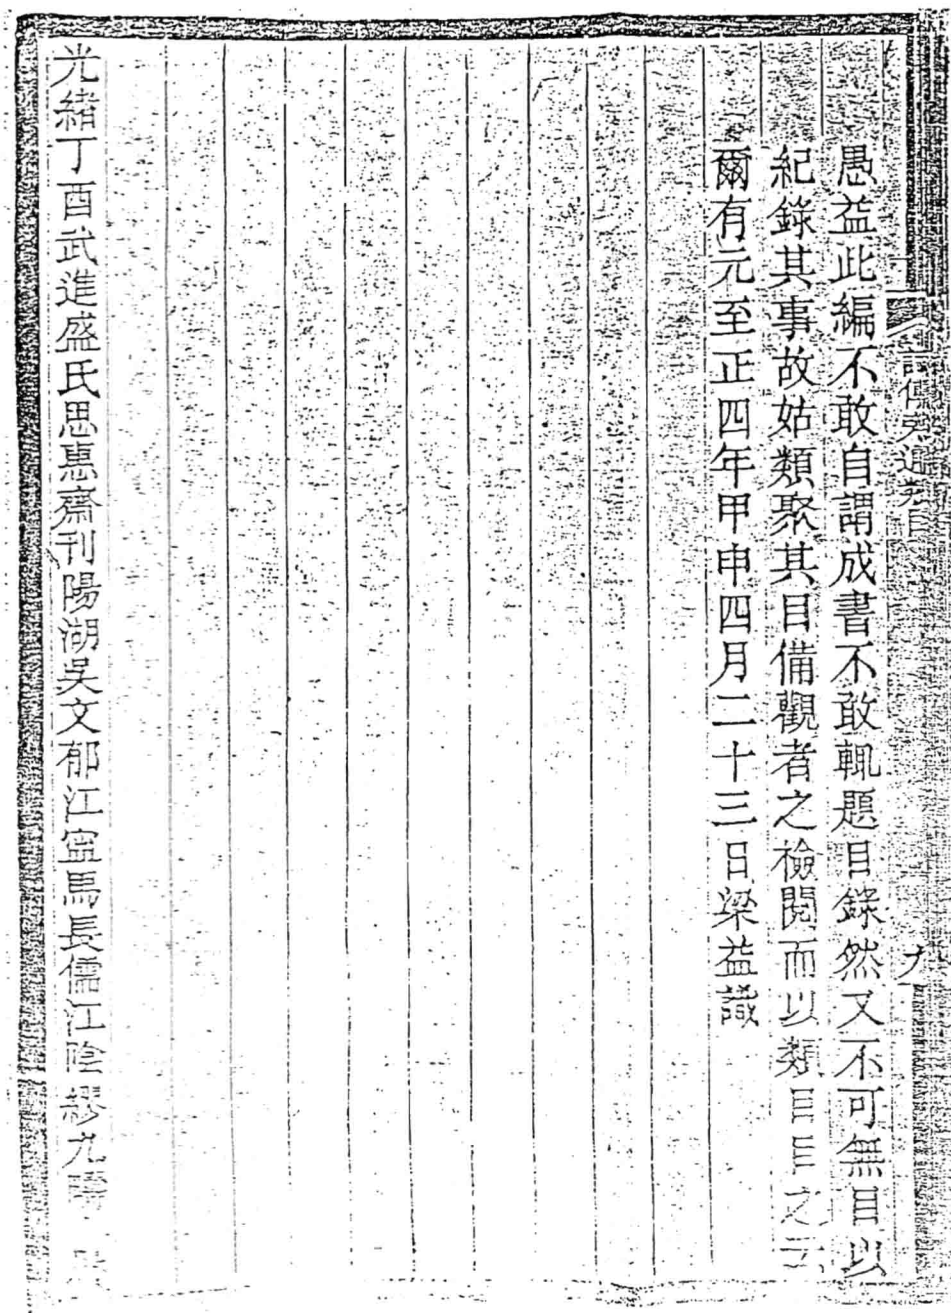 詩傳旁通類目
九
愚益此編不敢自謂成書不敢輒題目錄然又不可無目以
紀錄其事故姑類聚其目備觀者之檢閱而以類目目之云
爾有元至正四年甲申四月二十三日梁益識
光緒丁酉武進盛氏思惠齋刊陽湖吳文郁江寍馬長儒江陰繆九疇